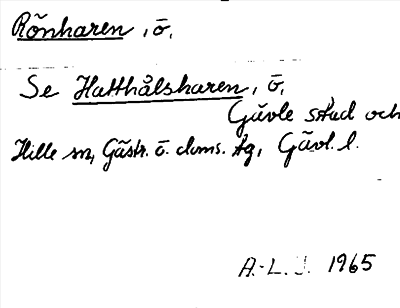 Rönharen, ö.
Se Hatthålsharen, ö.
Gävle stad och
Hille sn, Gästr. ö. doms. tg, Gävl. l.
A.-L. J. 1965